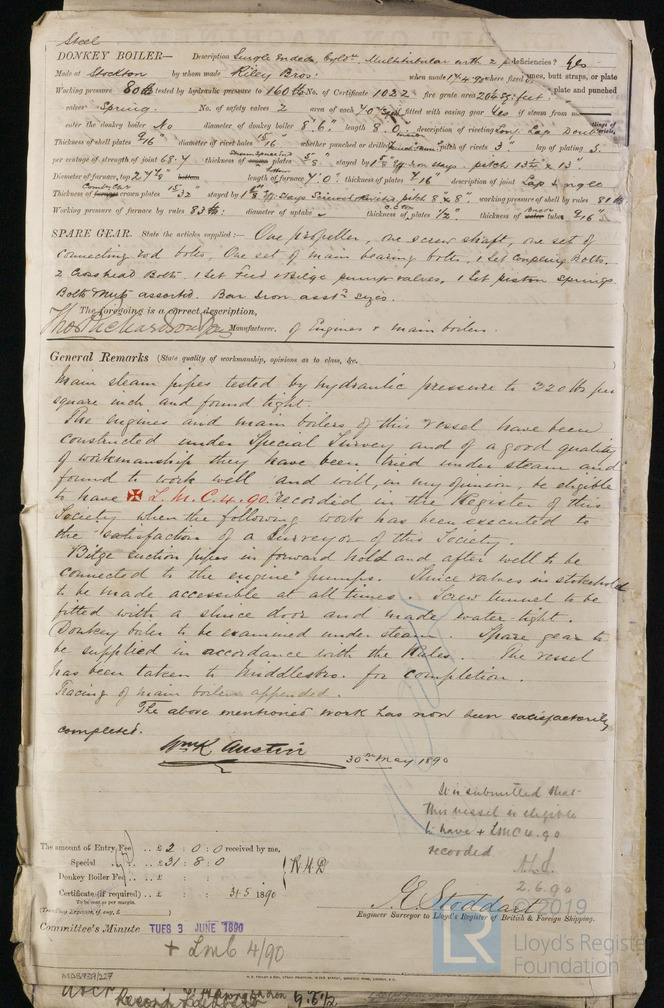 Steel
DONKEY BOILER— Description Single Ended, Cyl^dr. Multitubular with 2 deficiencies? Yes
Made at Stockton by whom made Riley Bros: when made 17.4.90 where fixed
Working pressure 80 lb tested by hydraulic pressure to 160 lb No. of Certificate 1022 fire grate area plate and punched
valves Spring. No. of safety valves 2 area of each fitted with casing gear Yes if steam from
enter the donkey boiler No diameter of donkey boiler 8' 6" length 8' 0" description of riveting Long. Lap Double
Thickness of shell plates 9/16" diameter of rivet holes 15/16" whether punched or drilled pitch of rivets 3" lap of plating 5.
per centage of strength of joint 68.7 thickness of plates 5/8" stayed by stays pitch 13½" x 13".
Diameter of furnace, top 2' 4⅞" bottom length of furnace 7' 0". thickness of plates 7/16" description of joint Lap single
Thickness of crown plates 15/32" stayed by pitch 8" x 8". working pressure of shell by rules 81 lb
Working pressure of furnace by rules 83 lb: diameter of uptake thickness of plates ½" thickness of tubes 9/16"
SPARE GEAR. State the articles supplied:— One propeller, one screw shaft, one set of
connecting rod bolts, One set of main bearing bolts, 1 Set Coupling Bolts.
2 Crosshead Bolts. 1 Set Feed & Bilge pump valves, 1 Set piston springs.
Bolts & Nuts assorted. Bar Iron asst^d sizes.
The foregoing is a correct description,
Tho^s Richardson & Sons Manufacturer. of Engines & main boilers.
General Remarks (State quality of workmanship, opinions as to class, &c.
Main steam pipes tested by hydraulic pressure to 320 lbs per
square inch and found tight.
The engines and main boilers of this vessel have been
constructed under Special Survey and of a good quality
of workmanship they have been tried under steam and
found to work well and will, in my opinion, be eligible
to have ✠ L.M.C. 4.90. recorded in the Register of this
Society when the following work has been executed to
the satisfaction of a Surveyor of this Society.
Bilge suction pipes in forward hold and after well to be
connected to the engine pumps. Sluice valves in stokehold
to be made accessible at all times. Screw tunnel to be
fitted with a sluice door and made water-tight.
Donkey boiler to be examined under steam. Spare gear to
be supplied in accordance with the Rules. The vessel
has been taken to Middlesbro. for completion.
Tracing of main boilers appended.
The above mentioned work has now been satisfactorily
completed.
Wm K Austin
30th May 1890
It is submitted that
this vessel is eligible
to have + LMC 4.90
recorded
2.6.90
The amount of Entry Fee .. £ 2 : 0 : 0 received by me,
Special .. £ 31 : 8 : 0
Donkey Boiler Fee .. £ : :
Certificate (if required) .. £ : : 31.5 1890
To be sent as per margin.
(Travelling Expenses, if any, £ )
J.E. Stoddart
Engineer Surveyor to Lloyd's Register of British & Foreign Shipping.
Committee's Minute TUES 3 JUNE 1890
+ LMC 4/90
© 2019
LR
Lloyd's Register
Foundation